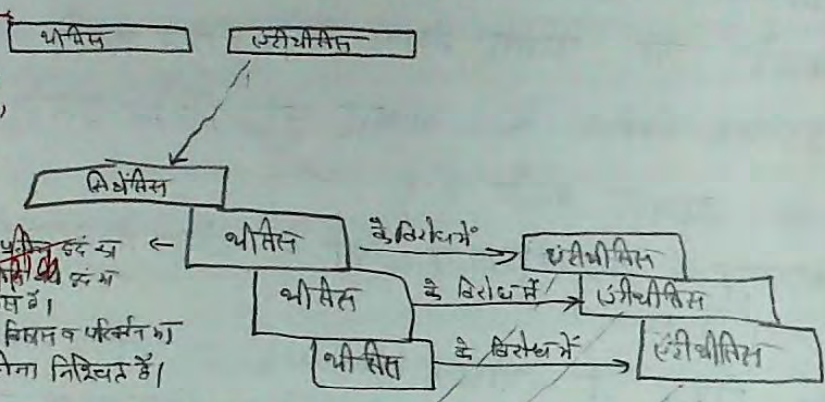 थीसिस एंटीथीसिस
सिंथेसिस
थीसिस के विरोध में एंटीथीसिस
थीसिस के विरोध में एंटीथीसिस
थीसिस के विरोध में एंटीथीसिस
द्वंद
द्वंद
है।
विकास व परिवर्तन का
होना निश्चित है।